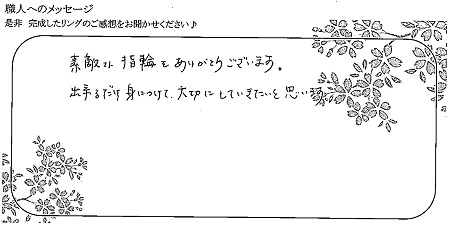 職人へのメッセージ
是非 完成したリングのご感想をお聞かせください♪
素敵な指輪をありがとうございます。
出来るだけ身につけて、大切にしていきたいと思います。